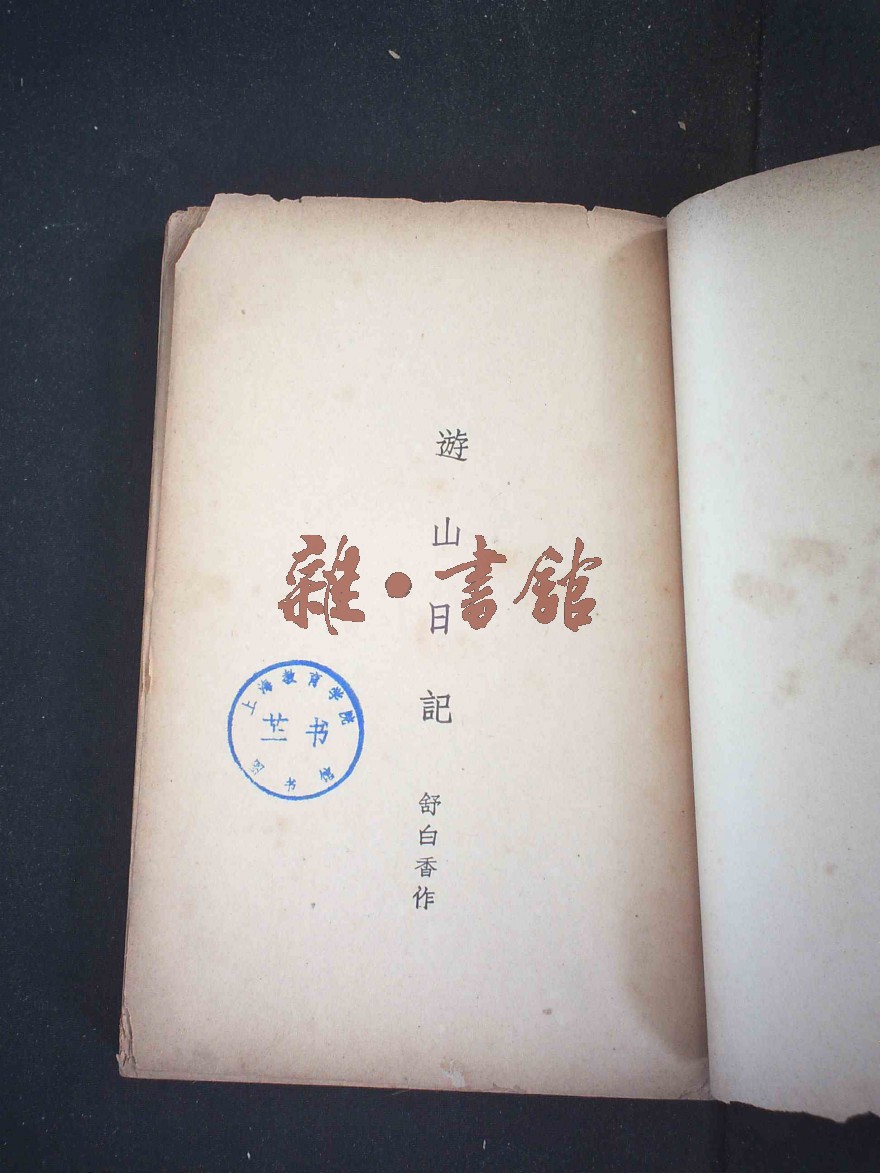 遊山日記
舒白香作
雜·書館
上海教育学院
图书馆